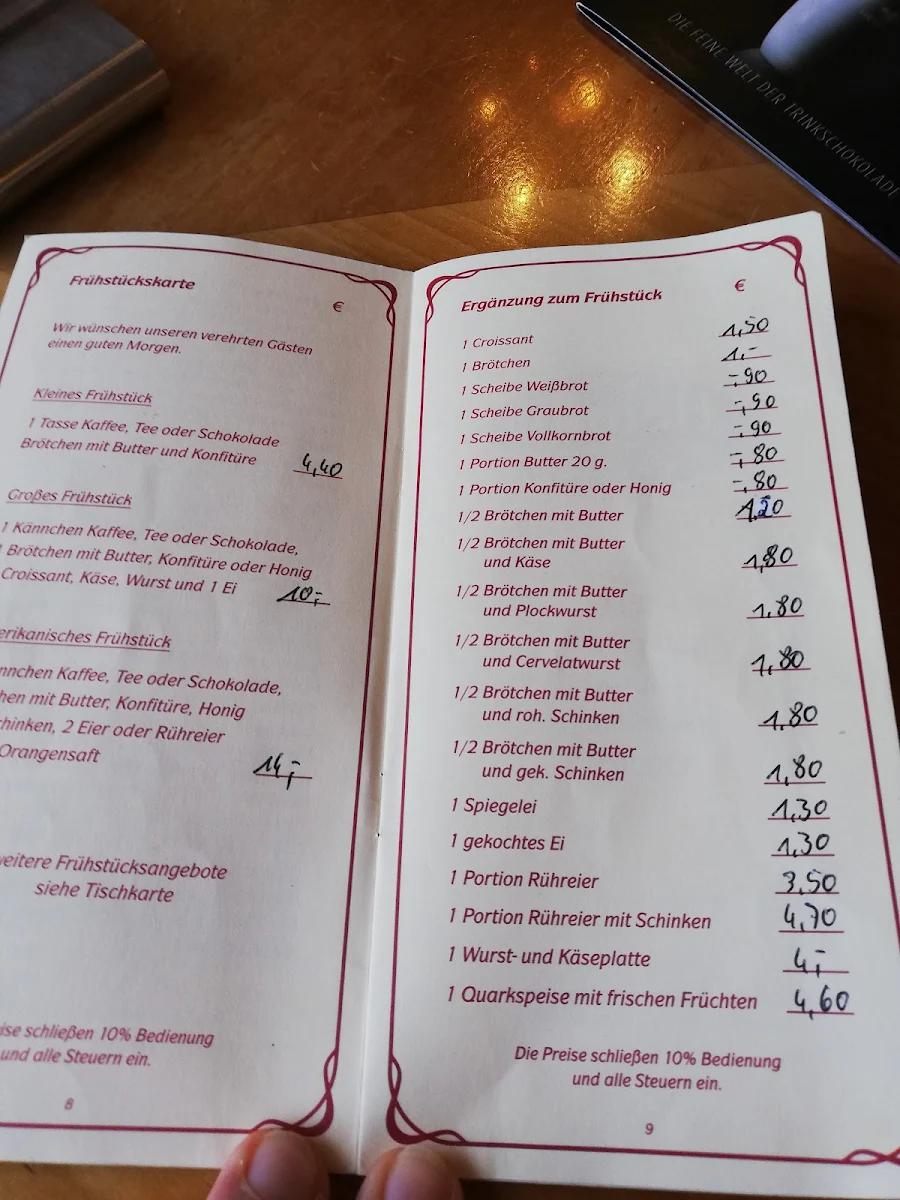 DIE FEINE WELT DER TRINKSCHOKOLADE
Frühstückskarte
€
Wir wünschen unseren verehrten Gästen
einen guten Morgen.
Kleines Frühstück
1 Tasse Kaffee, Tee oder Schokolade
Brötchen mit Butter und Konfitüre 4,40
Großes Frühstück
1 Kännchen Kaffee, Tee oder Schokolade,
Brötchen mit Butter, Konfitüre oder Honig
Croissant, Käse, Wurst und 1 Ei 10,-
erikanisches Frühstück
nnchen Kaffee, Tee oder Schokolade,
hen mit Butter, Konfitüre, Honig
chinken, 2 Eier oder Rühreier
Orangensaft 14,-
weitere Frühstücksangebote
siehe Tischkarte
ise schließen 10% Bedienung
und alle Steuern ein.
8
Ergänzung zum Frühstück €
1 Croissant 1,50
1 Brötchen 1,-
1 Scheibe Weißbrot -,90
1 Scheibe Graubrot -,90
1 Scheibe Vollkornbrot -,90
1 Portion Butter 20 g. -,80
1 Portion Konfitüre oder Honig -,80
1/2 Brötchen mit Butter 1,20
1/2 Brötchen mit Butter
und Käse 1,80
1/2 Brötchen mit Butter
und Plockwurst 1,80
1/2 Brötchen mit Butter
und Cervelatwurst 1,80
1/2 Brötchen mit Butter
und roh. Schinken 1,80
1/2 Brötchen mit Butter
und gek. Schinken 1,80
1 Spiegelei 1,30
1 gekochtes Ei 1,30
1 Portion Rühreier 3,50
1 Portion Rühreier mit Schinken 4,70
1 Wurst- und Käseplatte 4,-
1 Quarkspeise mit frischen Früchten 4,60
Die Preise schließen 10% Bedienung
und alle Steuern ein.
9